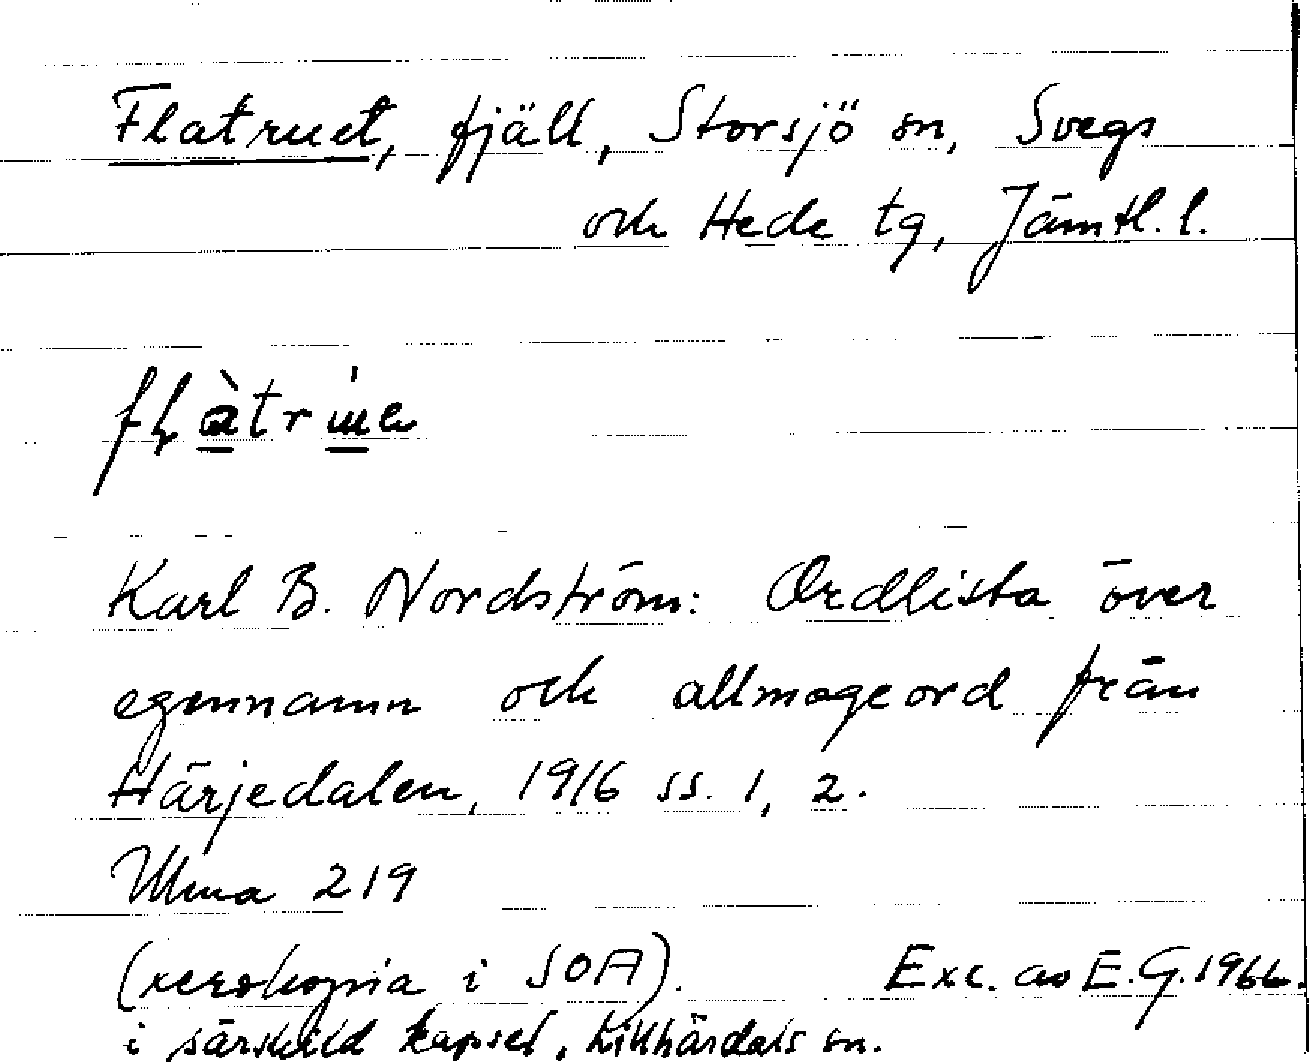 Flatruet, fjäll, Storsjö sn, Svegs
och Hede tg, Jämtl. l.
Karl B. Nordström: Ordlista över
egennamn och allmogeord från
Härjedalen, 1916 ss. 1, 2.
Ulma 219
(xerokopia i SOA). Exc. av E.G. 1966.
i särskild kapsel, Lillhärdals sn.